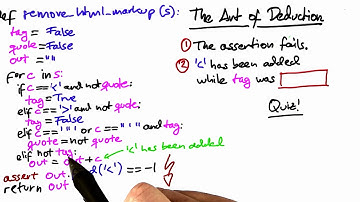 def remove_html_markup (s):
tag = False
quote = False
out = ""
for c in s:
if c == '<' and not quote:
tag = True
elif c == '>' and not quote:
tag = False
elif c == '"' or c == "'" and tag:
quote = not quote
elif not tag:
out = out + c ← '<' has been added
assert out. d('<') == -1
return out
The Art of Deduction
① The assertion fails.
② '<' has been added
while tag was
Quiz!